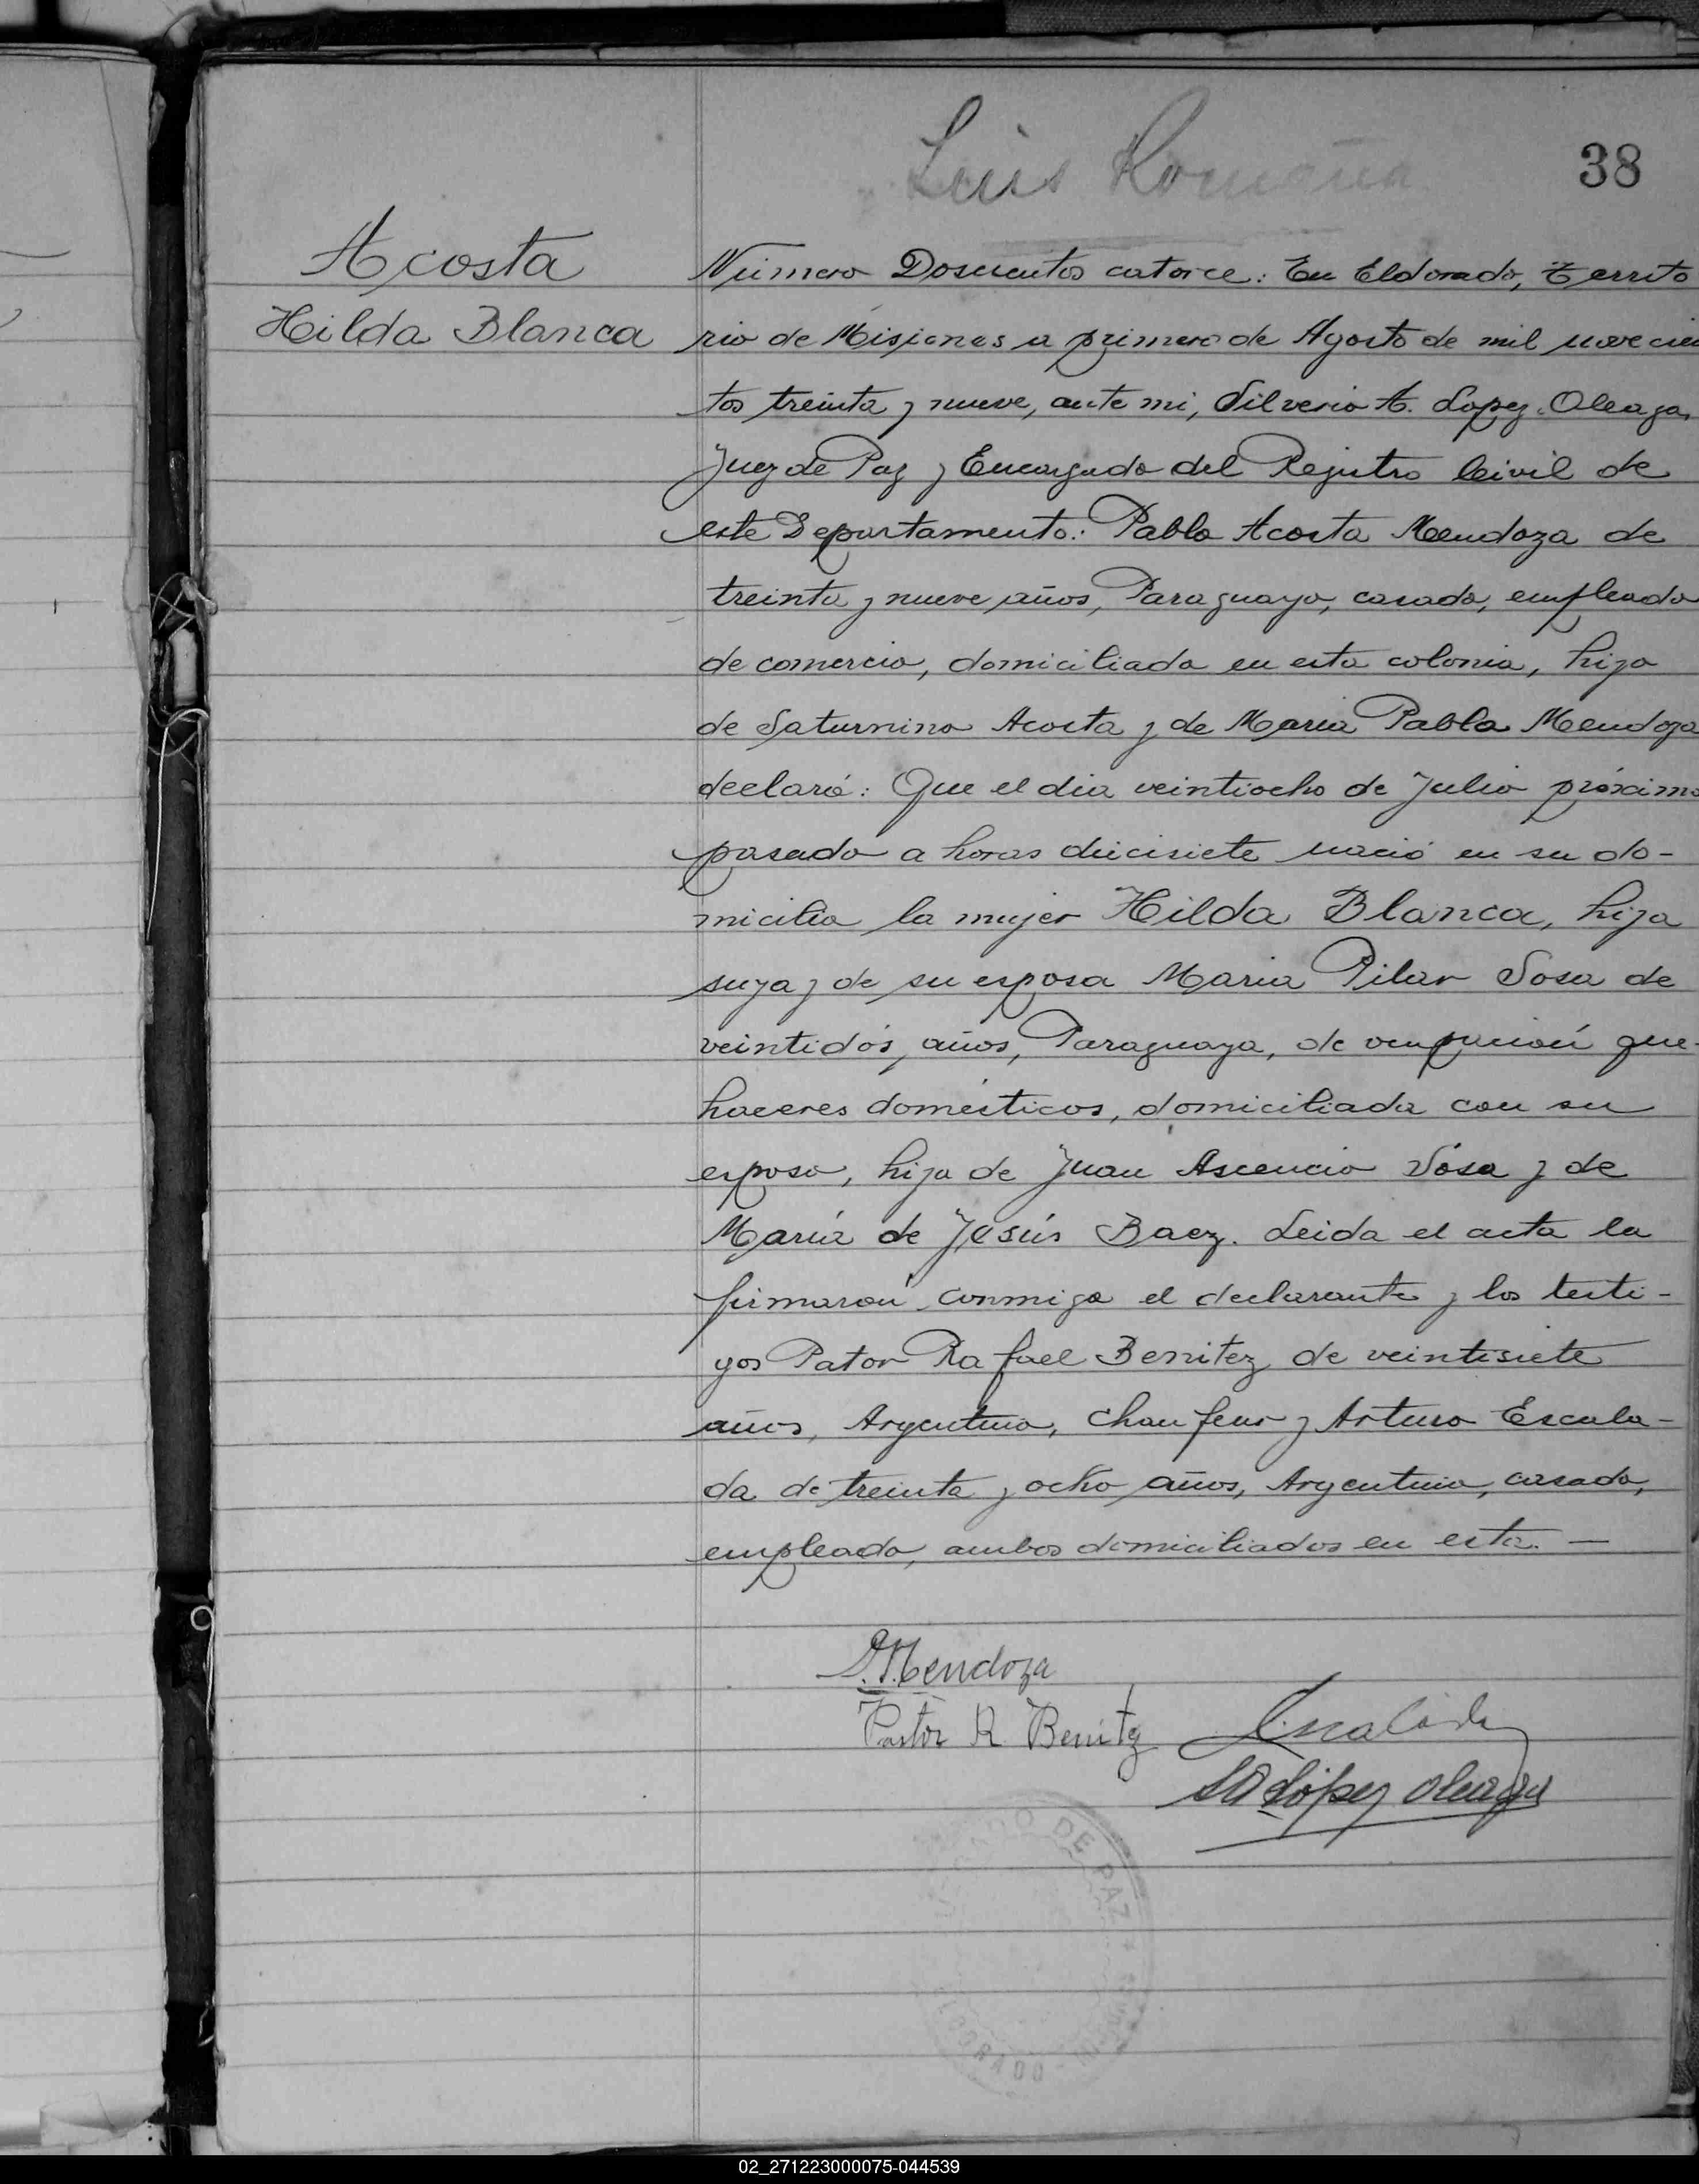 Luis Romaña
38
Acosta
Hilda Blanca
Número Doscientos catorce: En Eldorado, Territo
rio de Misiones a primero de Agosto de mil novecien
tos treinta y nueve, ante mi, Silverio A. Lopez Oleaga,
Juez de Paz y Encargado del Registro Civil de
este Departamento: Pablo Acosta Mendoza de
treinta y nueve años, Paraguayo, casado, empleado
de comercio, domiciliado en esta colonia, hijo
de Saturnino Acosta y de Maria Pabla Mendoza
declaró: Que el dia veintiocho de Julio próximo
pasado a horas diecisiete nació en su do-
micilio la mujer Hilda Blanca, hija
suya y de su esposa Maria Pilar Sosa de
veintidós años, Paraguaya, de ocupación que-
haceres domésticos, domiciliada con su
esposo, hija de Juan Ascencio Sosa y de
María de Jesús Baez. Leida el acta la
firmaron conmigo el declarante y los testi-
gos Pator Rafael Benitez de veintisiete
años, Argentino, Chaufeur y Arturo Escala-
da de treinta y ocho años, Argentino, casado,
empleado, ambos domiciliados en esta. —
P. Mendoza
Pastor R. Benitez
Escalada
SA López Oleaga
JUZGADO DE PAZ
ELDORADO - MISIONES
02_271223000075-044539